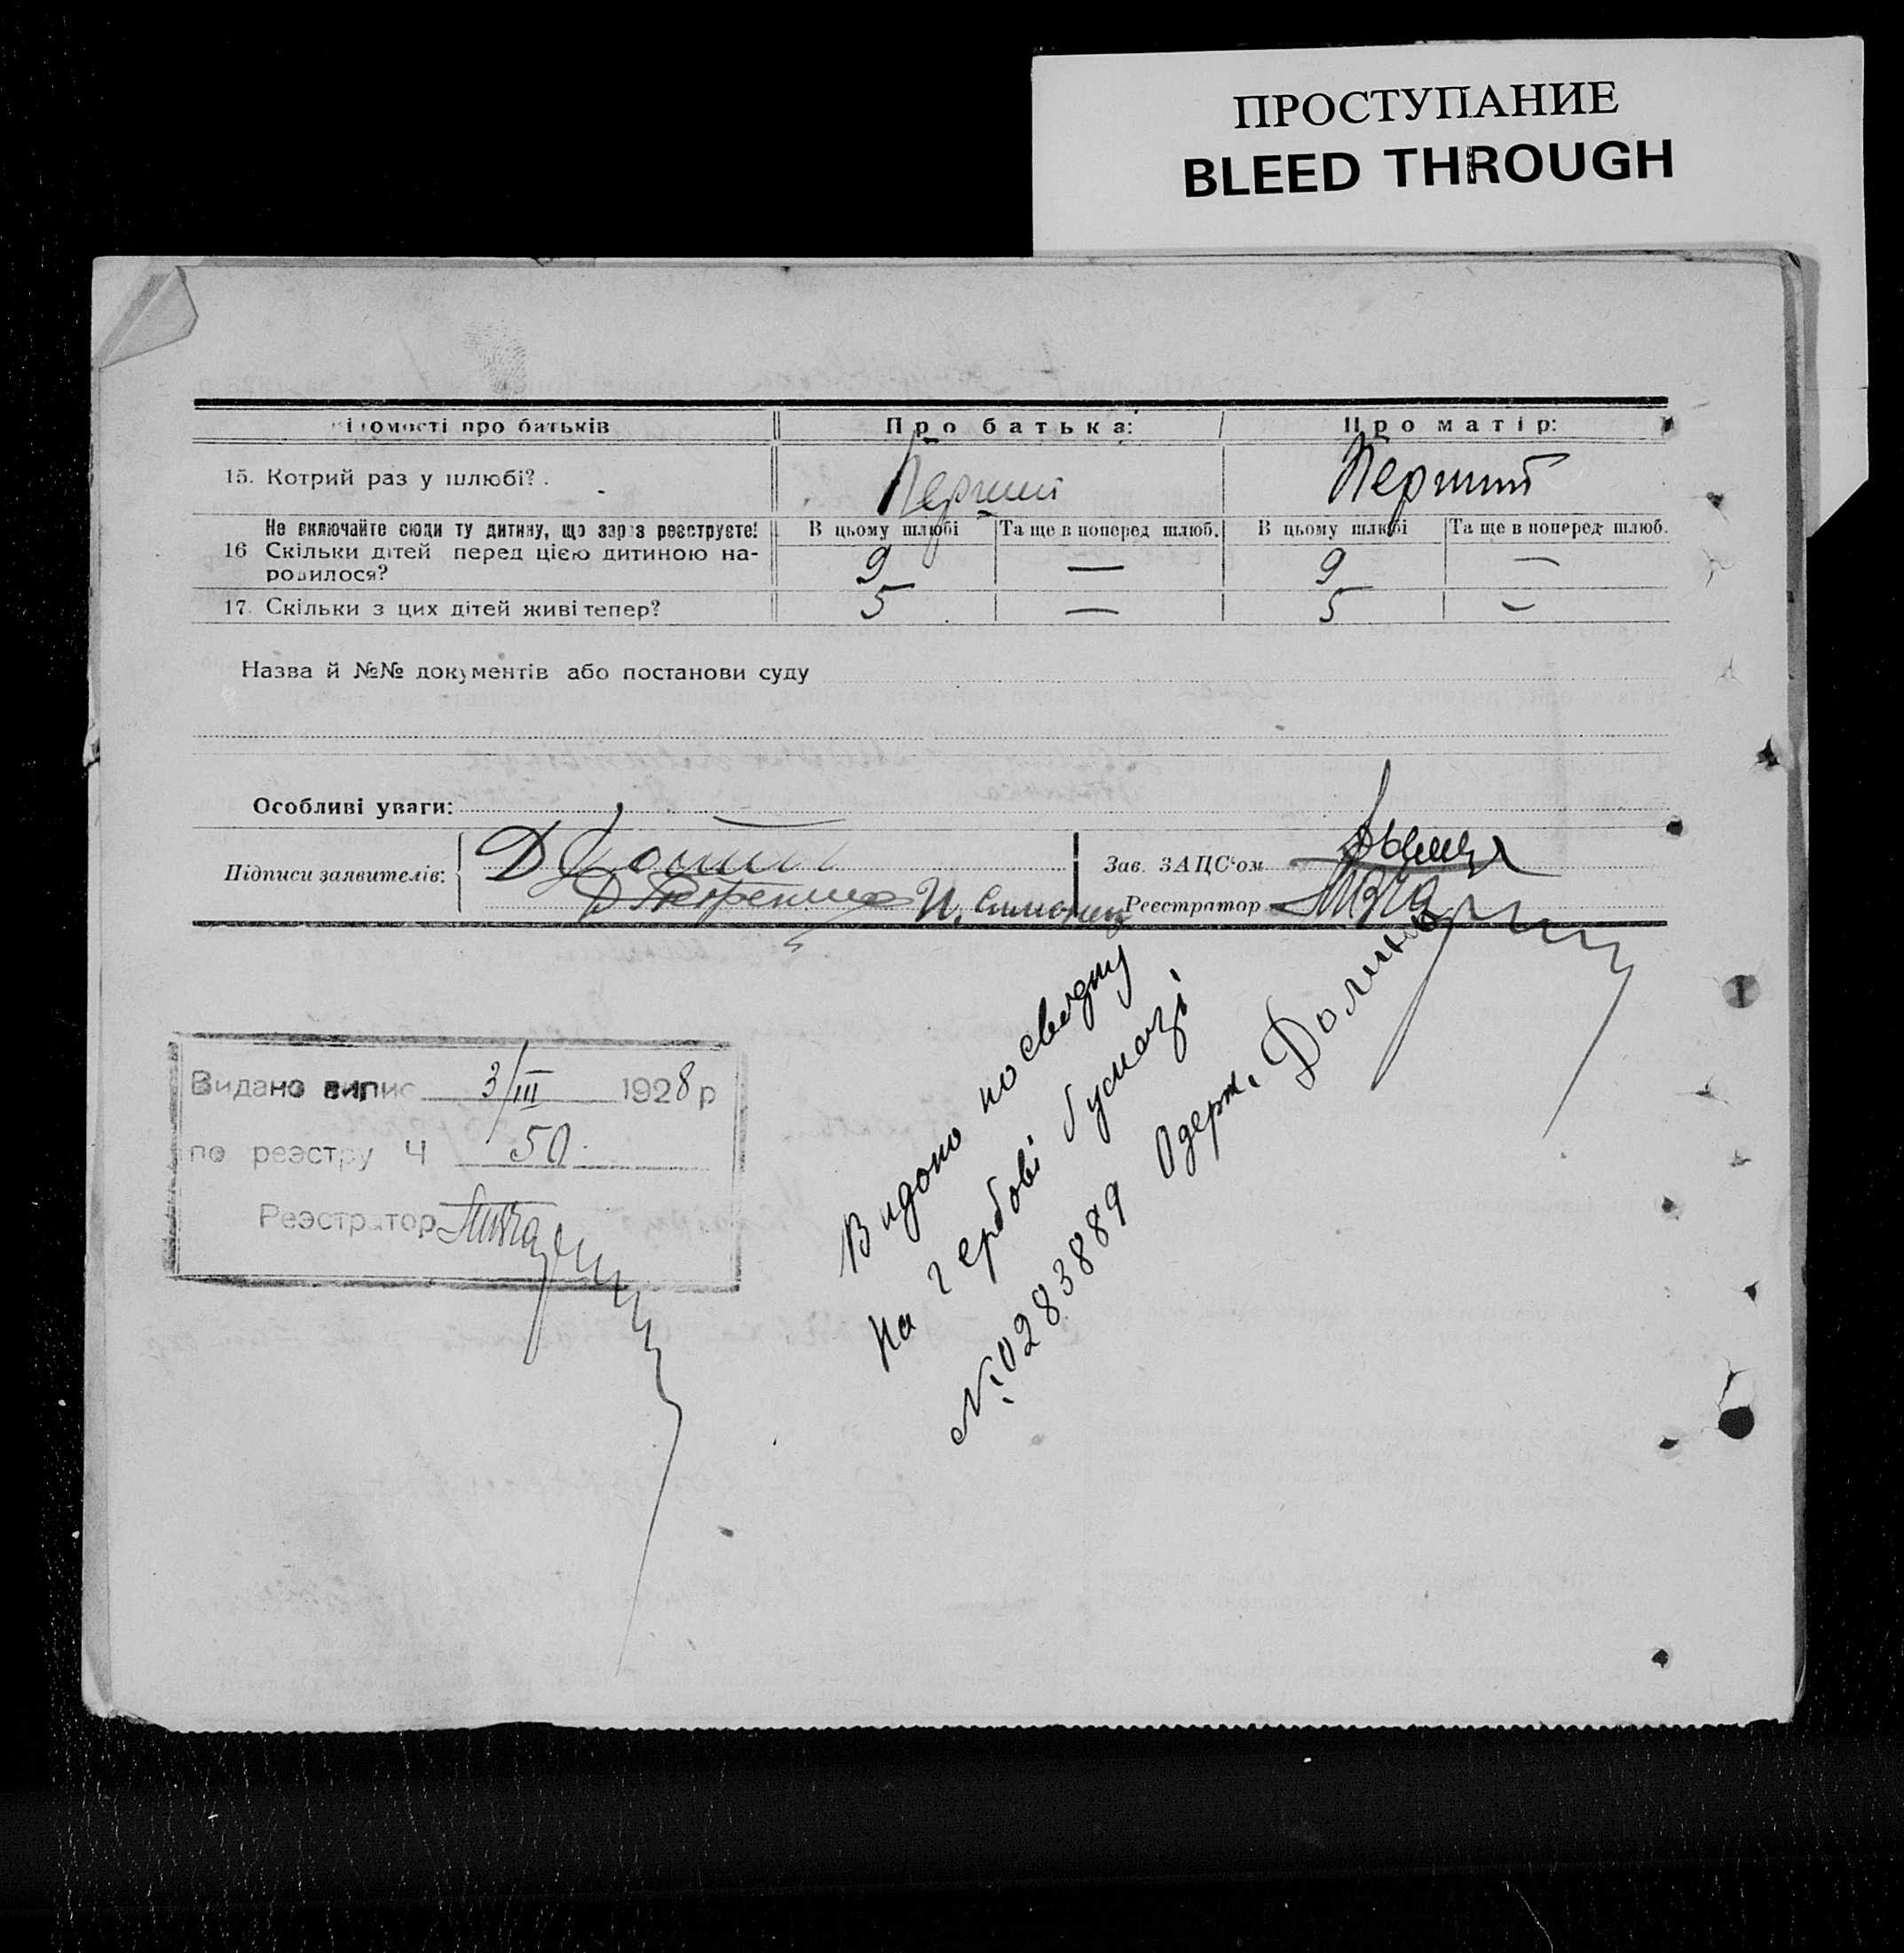 ПРОСТУПАНИЕ
BLEED THROUGH
ідомості про батьків
Про батька:
Про матір:
15. Котрий раз у шлюбі?
Перший
Перший
Не включайте сюди ту дитину, що зараз реєструєте!
16 Скільки дітей перед цією дитиною на-
родилося?
В цьому шлюбі
Та ще в поперед шлюб.
В цьому шлюбі
Та ще в поперед шлюб.
9 — 9 —
17. Скільки з цих дітей живі тепер?
5 — 5 —
Назва й №№ документів або постанови суду
Особливі уваги:
Підписи заявителів:
Зав. ЗАЦС'ом
Реєстратор
Видано випис 3/III 1928 р
по реэстру Ч 50
Реэстратор
Видоно посведку
на гербові бумазі
№ 0283889 Одерж.